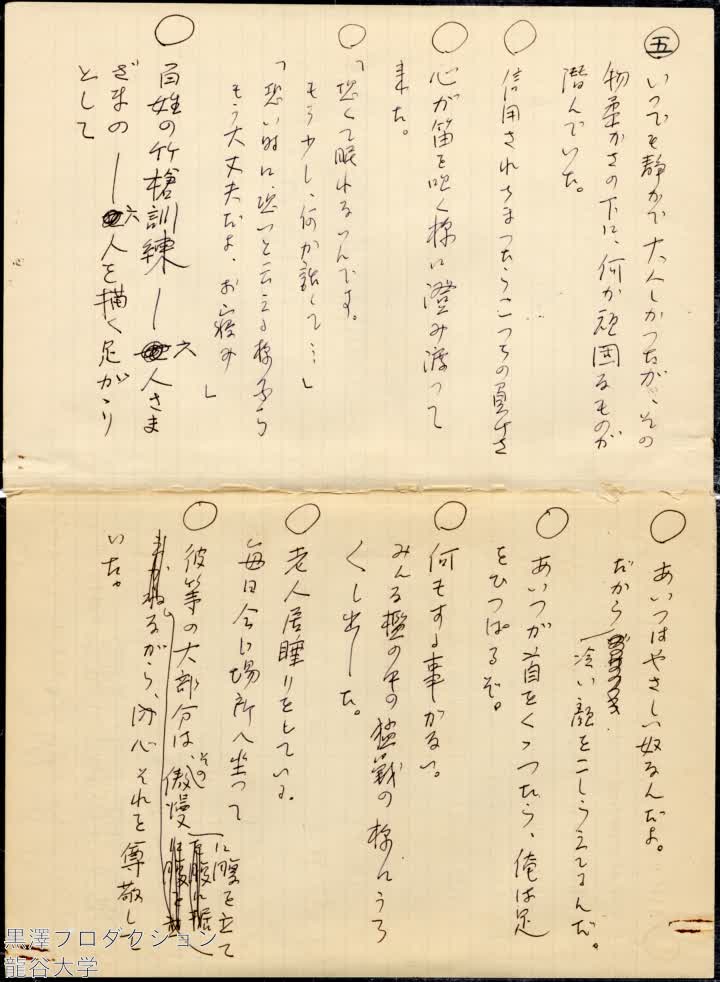 五
いつでも静かで大人しかつたが、その
物柔かさの下に、何か頑固なものが
潜んでいた。
信用されちまつたらこつちの負けさ
心が笛を吹く様に澄み渡って
来た。
「恐くて眠れないんです。
もう少し、何か話して…」
「恐い時に恐いと云える様なら
もう大丈夫だよ、お寝み」
百姓の竹槍訓練 ― 六人さま
ざまの ― 六人を描く足がゝり
として
あいつはやさしい奴なんだよ。
だから
冷い顔をこしらえてるんだ。
あいつが首をくゝつたら、俺は足
をひつぱるぞ。
何もする事がない。
みんな檻の中の猛獣の様にうろ
くし出した。
老人居睡りをしている。
毎日会い場所へ坐って
彼等の大部分は、その傲慢
に腹を立て
ながら、内心それを尊敬して
いた。
黒澤プロダクション
龍谷大学